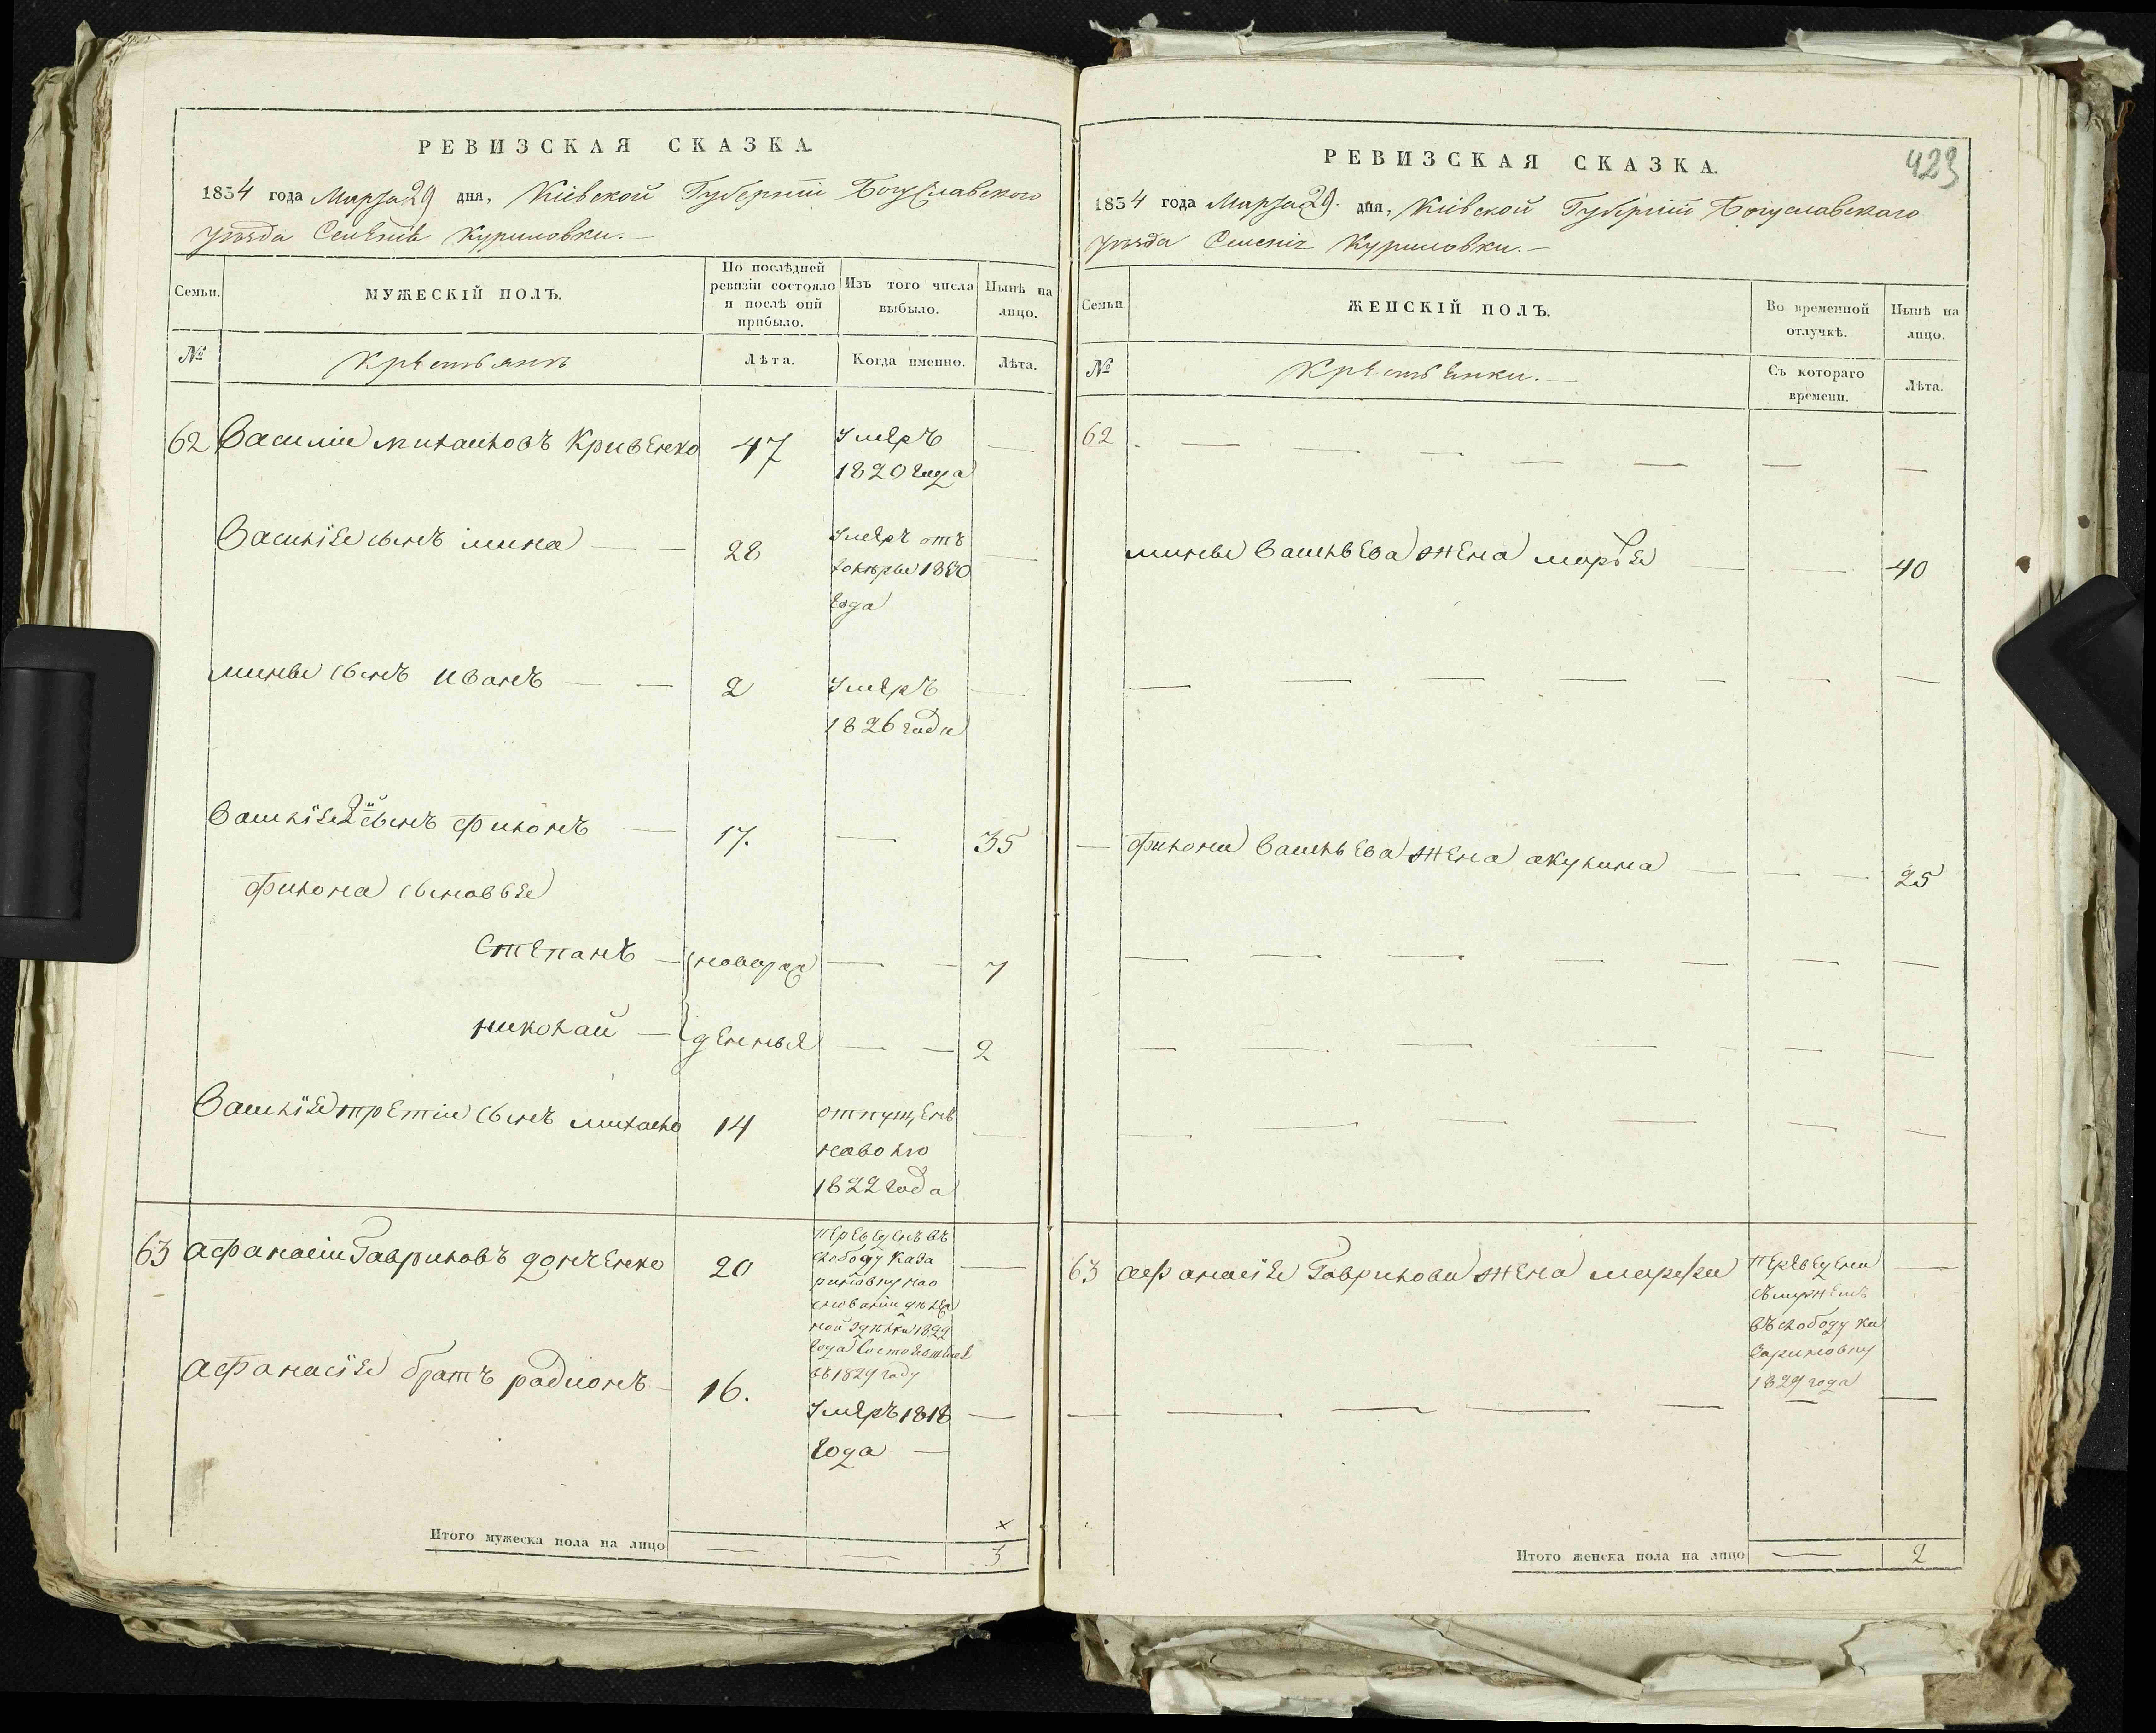 РЕВИЗСКАЯ СКАЗКА.
1834 года Марта 29 дня, Кіевской Губерніи Богуславского
уѣзда Селенія Куриловки.
Семьи.
МУЖЕСКІЙ ПОЛЪ.
По послѣдней
ревизіи состояло
и послѣ оной
прибыло.
Изъ того числа
выбыло.
Нынѣ на
лицо.
№
Крестьянъ
Лѣта.
Когда именно.
Лѣта.
62 Василій михайловъ Кривенко 47 Умеръ —
1820 года
Василія сынъ мина — — 28 Умеръ отъ —
холеры 1830
года
мины сынъ иванъ — — 2 Умеръ —
1826 года
Василія 2й сынъ филонъ — 17. — 35
филона сыновья
Степанъ — новорож — — 7
николай — денныя — — 2
Василія третій сынъ михайло 14 отпущенъ —
наволю
1822 года
63 афанасій Гавриловъ донченко 20 переведенъ въ —
слободу Каза
риновку нао
снованіи
1829
года
въ 1829 году
афанасія братъ радионъ — 16. Умеръ 1818 —
года —
Итого мужеска пола на лицо — — 3
РЕВИЗСКАЯ СКАЗКА.
423
1834 года Марта 29. дня, Кіевской Губерніи Богуславскаго
уѣзда Селенія Куриловки. —
Семьи
ЖЕНСКІЙ ПОЛЪ.
Во временной
отлучкѣ.
Нынѣ на
лицо.
№
Крестьянки. —
Съ котораго
времени.
Лѣта.
62 — — — — — — —
мины Васильева жена марья — — 40
— филона Васильева жена акулина — — — 25
63 афанасія Гаврилова жена марфа переведена —
съ мужемъ
въ слободу ка
зариновку
1829 года
Итого женска пола на лицо — 2